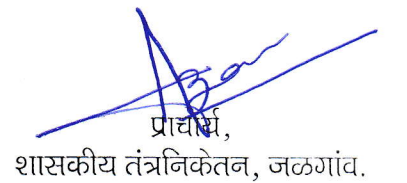 प्राचार्य,
शासकीय तंत्रनिकेतन, जळगांव.